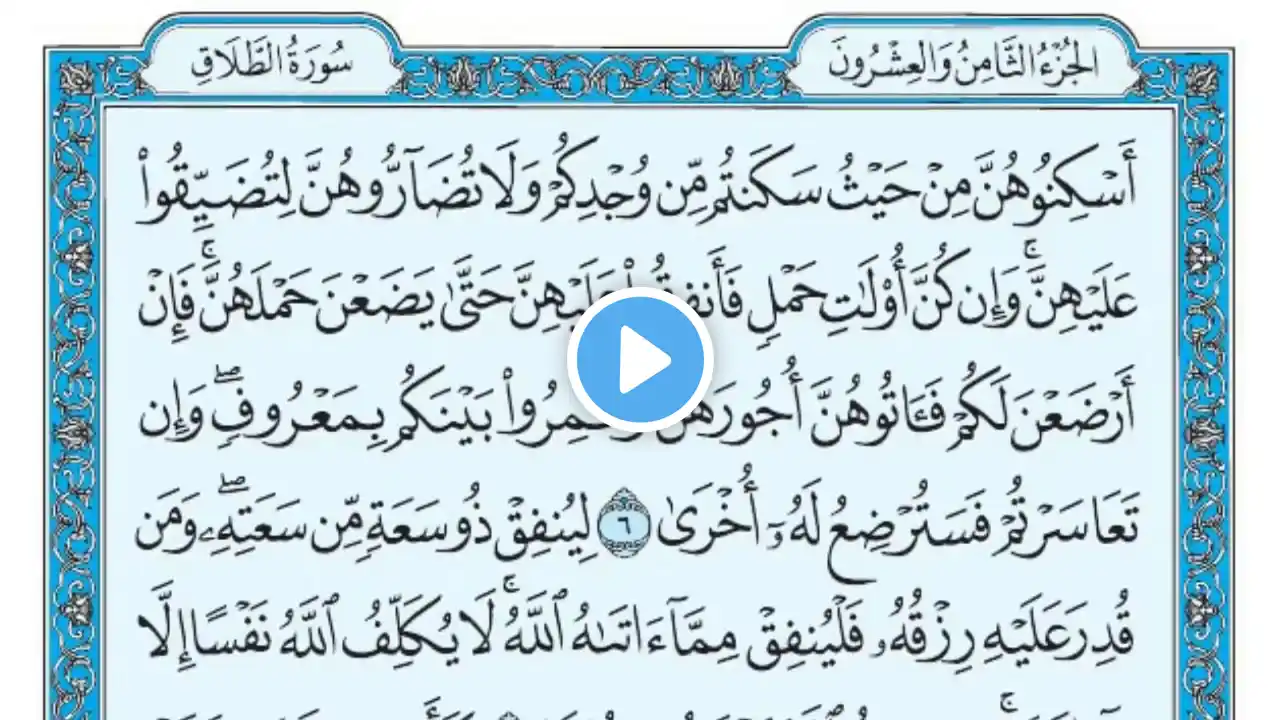 سُورَةُ الطَّلَاقِ
الجُزْءُ الثَّامِنُ وَالعِشْرُونَ
أَسْكِنُوهُنَّ مِنْ حَيْثُ سَكَنتُم مِّن وُجْدِكُمْ وَلَا تُضَآرُّوهُنَّ لِتُضَيِّقُوا۟
عَلَيْهِنَّ ۚ وَإِن كُنَّ أُو۟لَـٰتِ حَمْلٍ عَلَيْهِنَّ حَتَّىٰ يَضَعْنَ حَمْلَهُنَّ ۚ فَإِنْ
أَرْضَعْنَ لَكُمْ فَـَٔاتُوهُنَّ أُجُورَهُنَّ بَيْنَكُم بِمَعْرُوفٍ ۖ وَإِن
تَعَاسَرْتُمْ فَسَتُرْضِعُ لَهُۥٓ أُخْرَىٰ ٦ لِيُنفِقْ ذُو سَعَةٍ مِّن سَعَتِهِۦ ۖ وَمَن
قُدِرَ عَلَيْهِ رِزْقُهُۥ فَلْيُنفِقْ مِمَّآ ءَاتَىٰهُ ٱللَّهُ ۚ لَا يُكَلِّفُ ٱللَّهُ نَفْسًا إِلَّا